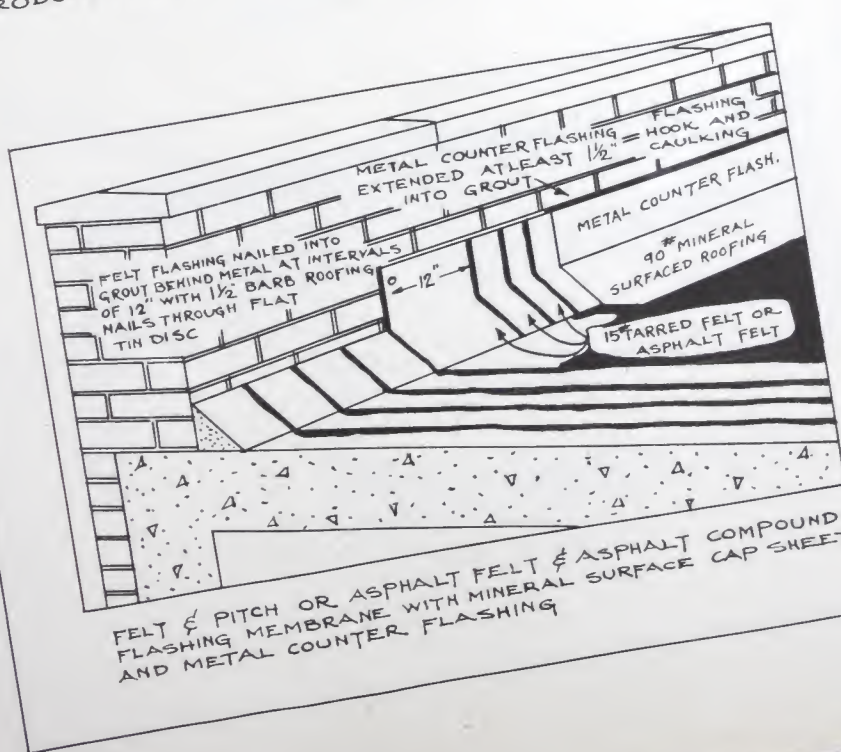 METAL COUNTER FLASHING
EXTENDED ATLEAST 1½" =
INTO GROUT
FLASHING
HOOK AND
CAULKING
METAL COUNTER FLASH.
90# MINERAL
SURFACED ROOFING
FELT FLASHING NAILED INTO
GROUT BEHIND METAL AT INTERVALS
OF 12" WITH 1½" BARB ROOFING
NAILS THROUGH FLAT
TIN DISC
12"
15# TARRED FELT OR
ASPHALT FELT
FELT & PITCH OR ASPHALT FELT & ASPHALT COMPOUND
FLASHING MEMBRANE WITH MINERAL SURFACE CAP SHEET
AND METAL COUNTER FLASHING